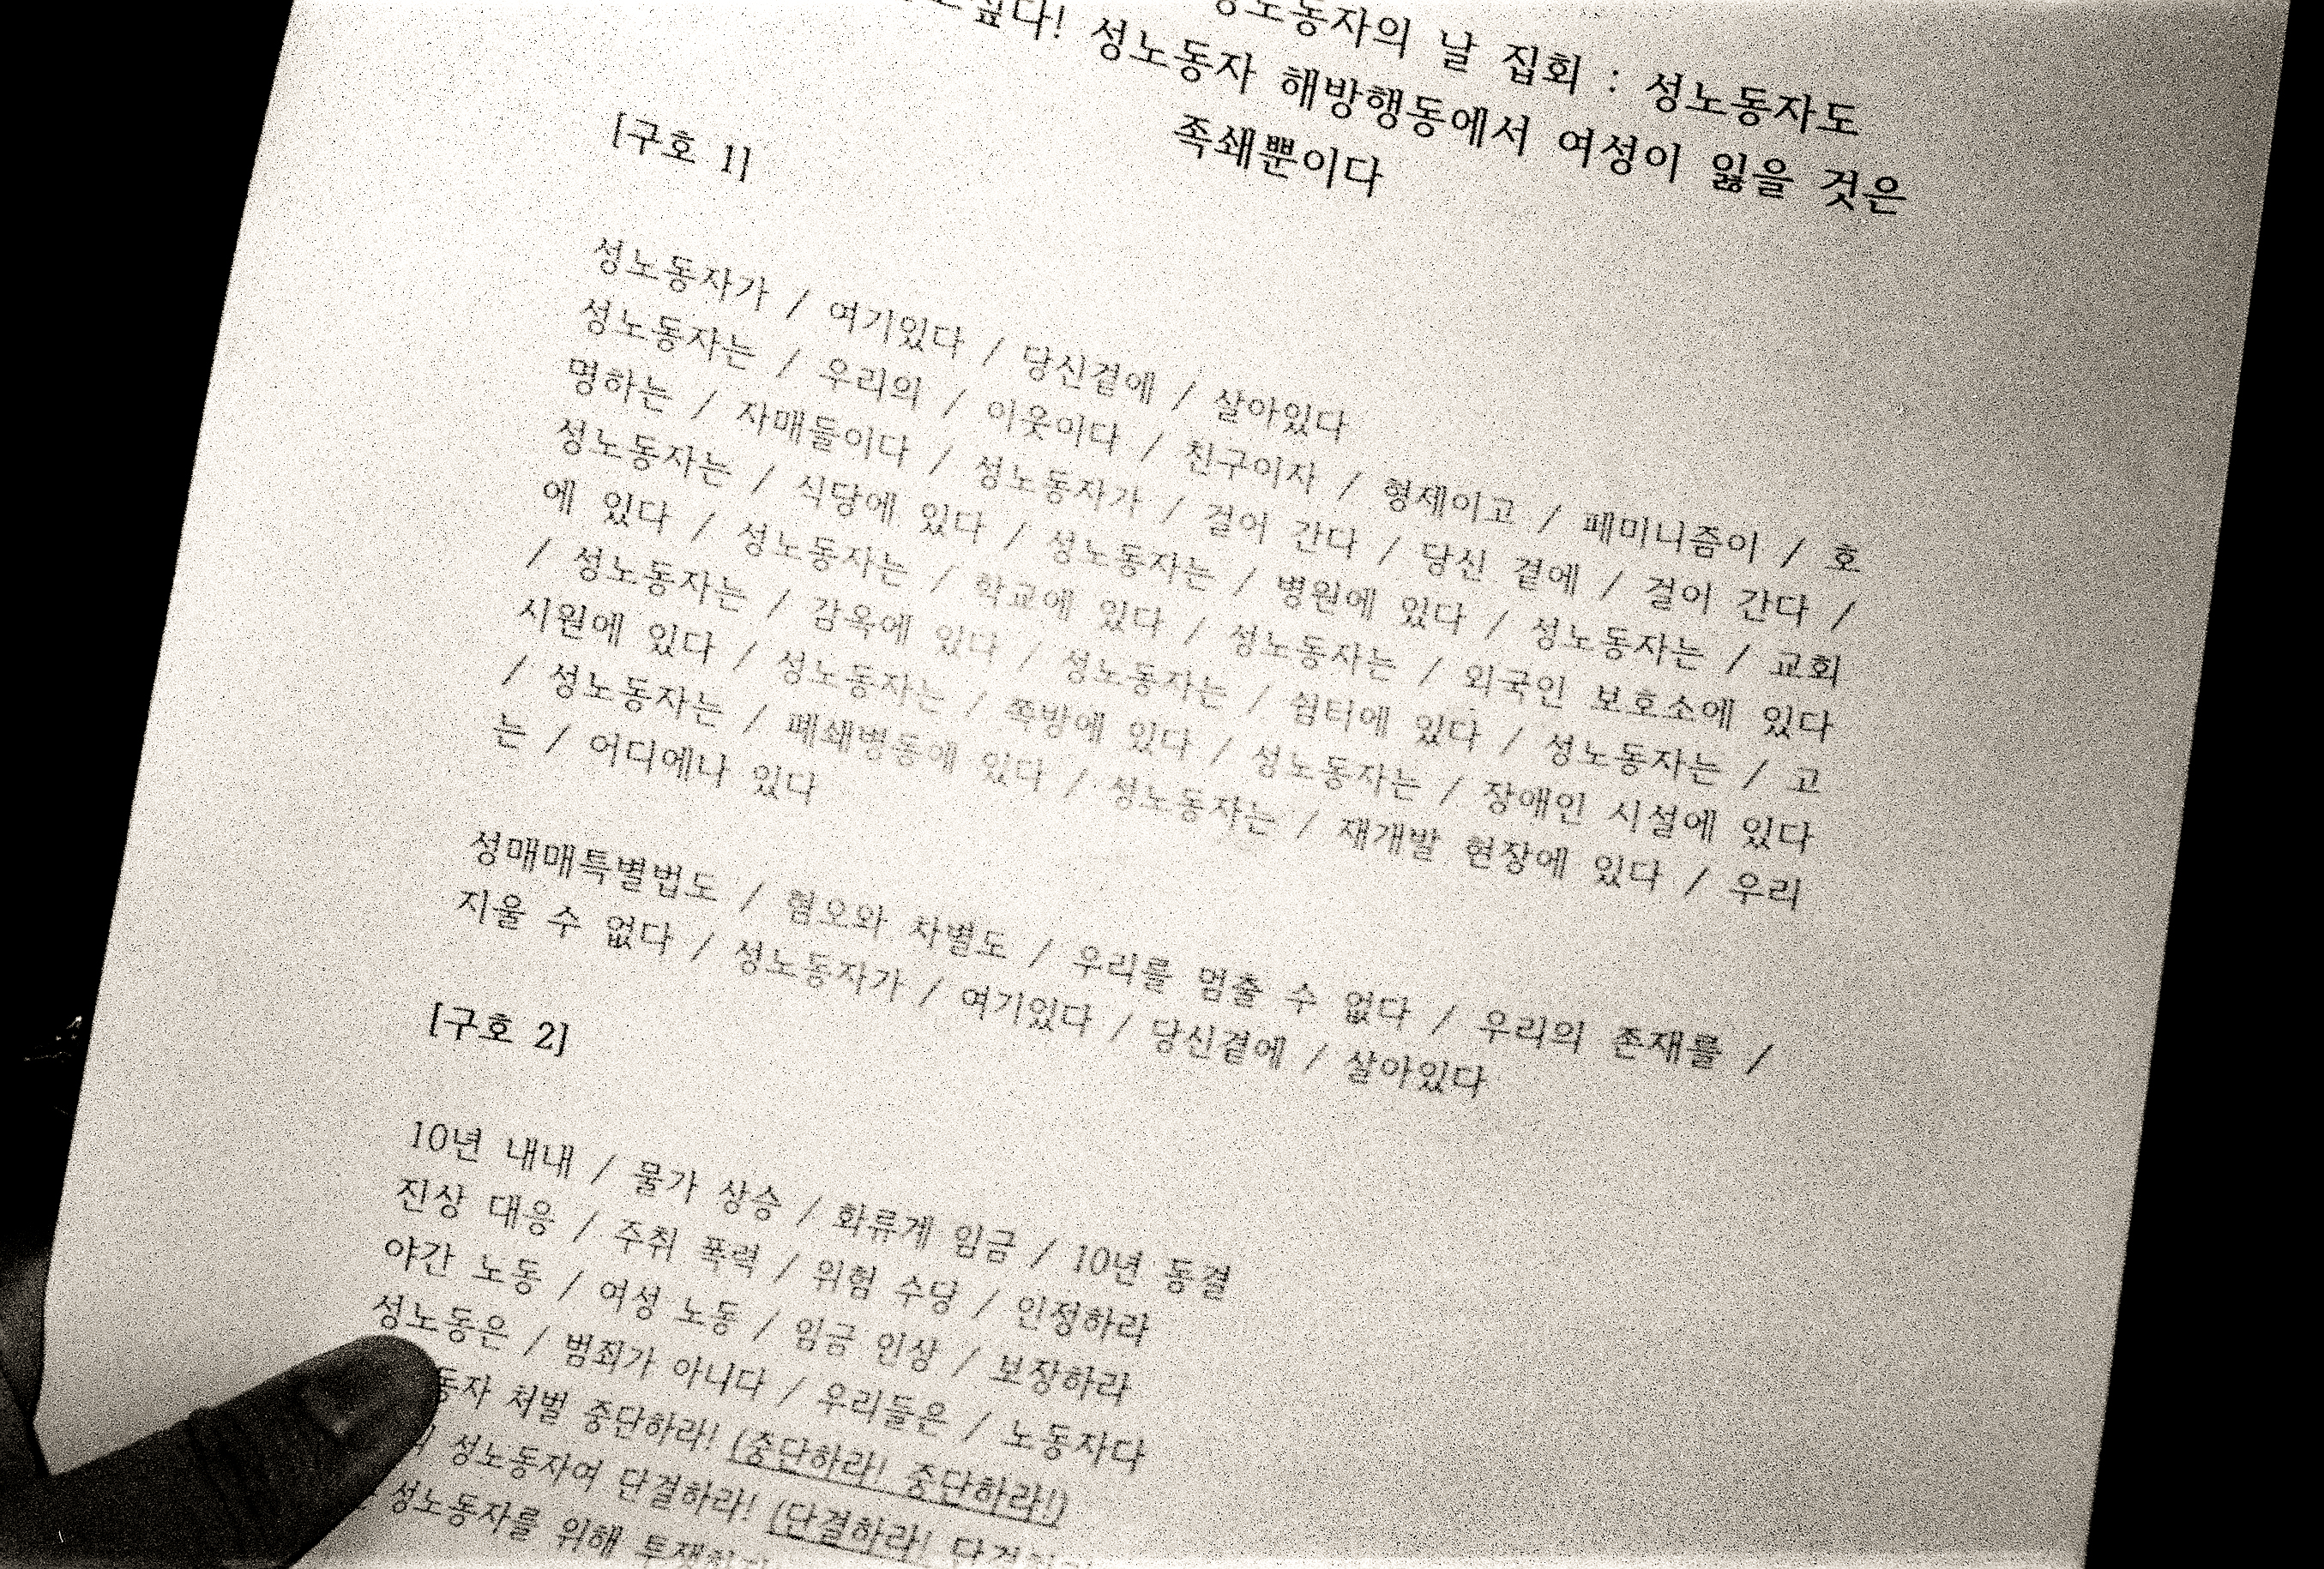 성노동자의 날 집회 : 성노동자도
싶다! 성노동자 해방행동에서 여성이 잃을 것은
족쇄뿐이다
[구호 1]
성노동자가 / 여기있다 / 당신곁에 / 살아있다
성노동자는 / 우리의 / 이웃이다 / 친구이자 / 형제이고 / 페미니즘이 / 호
명하는 / 자매들이다 / 성노동자가 / 걸어 간다 / 당신 곁에 / 걸어 간다 /
성노동자는 / 식당에 있다 / 성노동자는 / 병원에 있다 / 성노동자는 / 교회
에 있다 / 성노동자는 / 학교에 있다 / 성노동자는 / 외국인 보호소에 있다
/ 성노동자는 / 감옥에 있다 / 성노동자는 / 쉼터에 있다 / 성노동자는 / 고
시원에 있다 / 성노동자는 / 쪽방에 있다 / 성노동자는 / 장애인 시설에 있다
/ 성노동자는 / 폐쇄병동에 있다 / 성노동자는 / 재개발 현장에 있다 / 우리
는 / 어디에나 있다
성매매특별법도 / 혐오와 차별도 / 우리를 멈출 수 없다 / 우리의 존재를 /
지울 수 없다 / 성노동자가 / 여기있다 / 당신곁에 / 살아있다
[구호 2]
10년 내내 / 물가 상승 / 화류계 임금 / 10년 동결
진상 대응 / 주취 폭력 / 위험 수당 / 인정하라
야간 노동 / 여성 노동 / 임금 인상 / 보장하라
성노동은 / 범죄가 아니다 / 우리들은 / 노동자다
동자 처벌 중단하라! (중단하라! 중단하라!)
성노동자여 단결하라! (단결하라!
성노동자를 위해